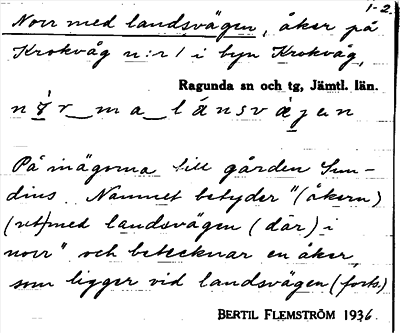 1-2.
Norr med landsvägen, åker på
Krokvåg n:r 1 i byn Krokvåg,
Ragunda sn och tg, Jämtl. län.
På inägorna till gården Sun-
dins. Namnet betyder "(åkern)
(ut)med landsvägen (där) i
norr" och betecknar en åker,
som ligger vid landsvägen (forts.)
BERTIL FLEMSTRÖM 1936.